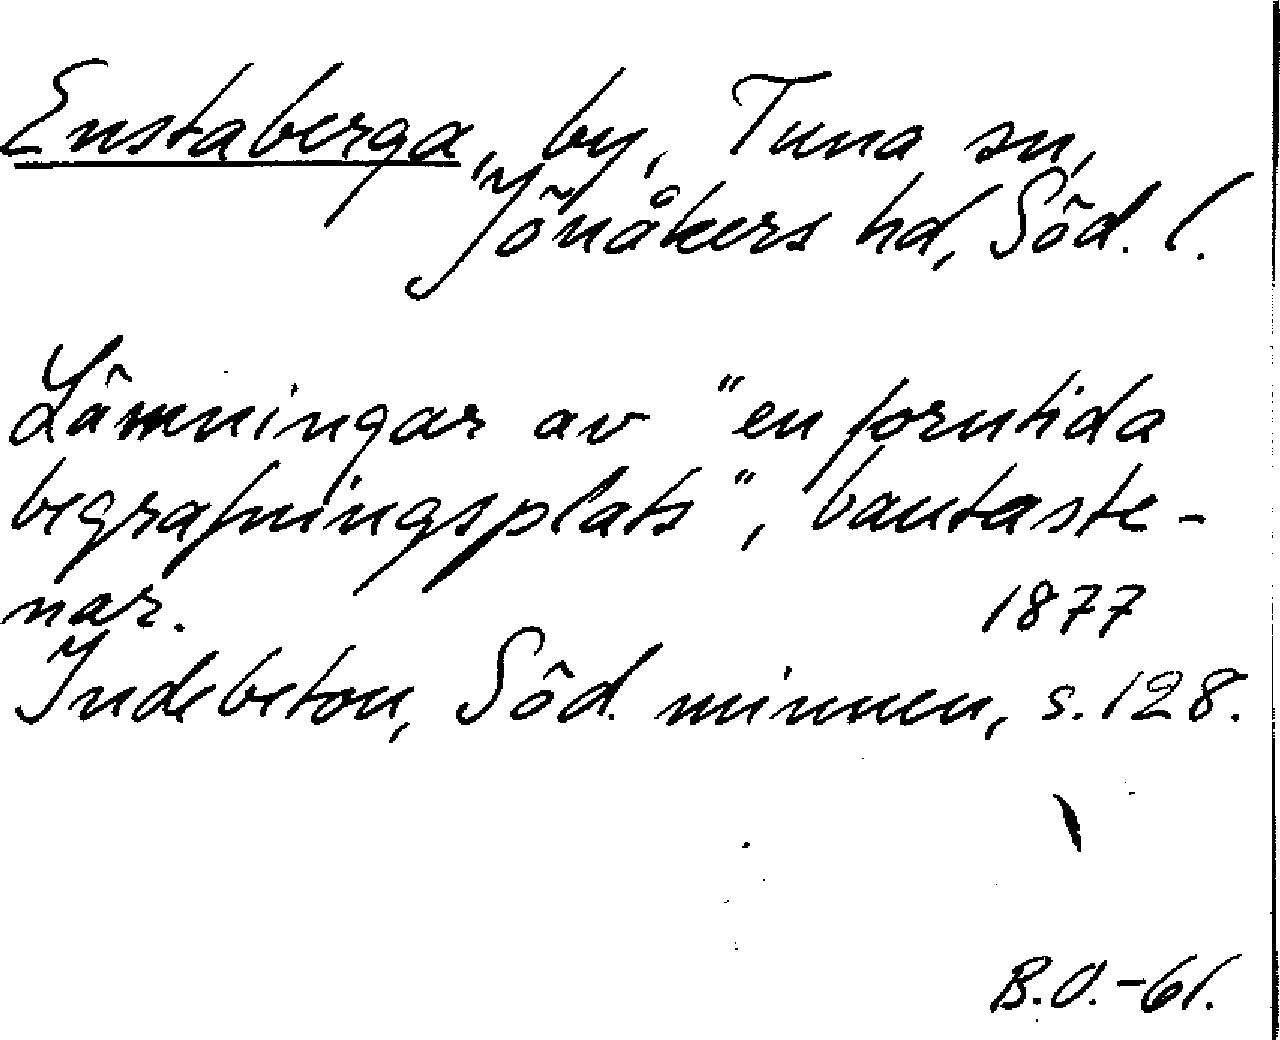 Enstaberga, by, Tuna sn,
Jönåkers hd, Söd. l.
Lämningar av "en forntida
begrafningsplats", bautaste-
nar. 1877
Indebetou, Söd. minnen, s. 128.
B.O.-61.